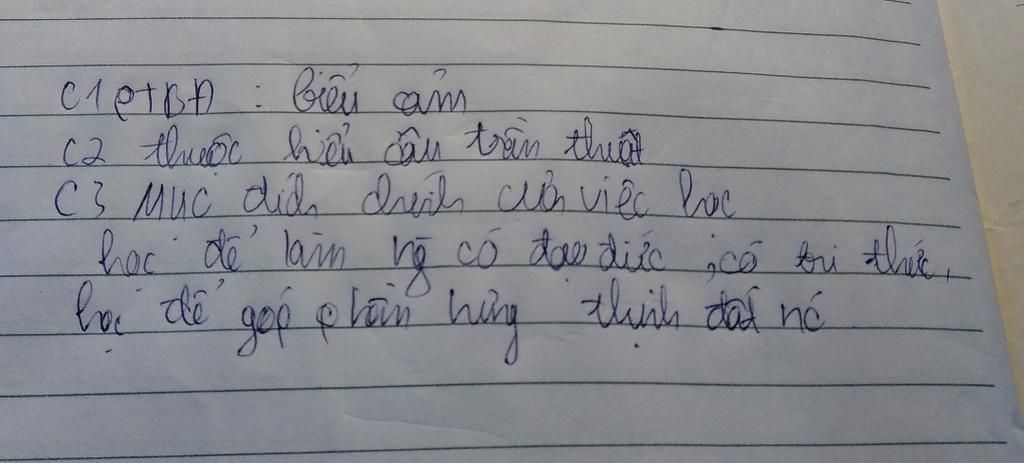 C1 PTBĐ : Biểu cảm
C2 thuộc kiểu câu trần thuật
C3 Mục đích chính của việc học
học để làm ng có đạo đức , có tri thức,
học để góp phần hưng thịnh đất nc